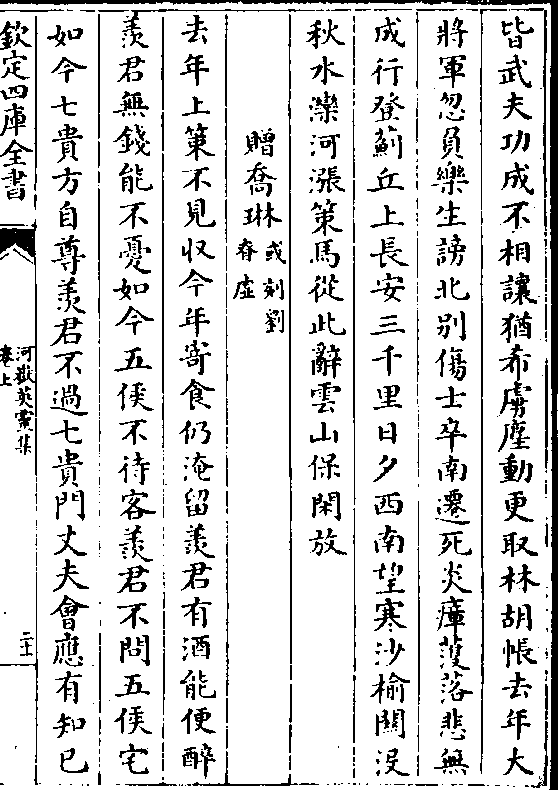 皆武夫功成不相讓猶希虜塵動更取林胡帳去年大
將軍忽負樂生謗北別傷士卒南遷死炎瘴濩落悲無
成行登薊丘上長安三千里日夕西南望寒沙榆關没
秋水灤河漲策馬從此辭雲山保閑放
贈喬琳或刻劉
眘虚
去年上策不見収今年寄食仍淹留羨君有酒能便醉
羨君無錢能不憂如今五侯不待客羨君不問五侯宅
如今七貴方自尊羨君不過七貴門丈夫會應有知已
欽定四庫全書
河嶽英靈集
卷上